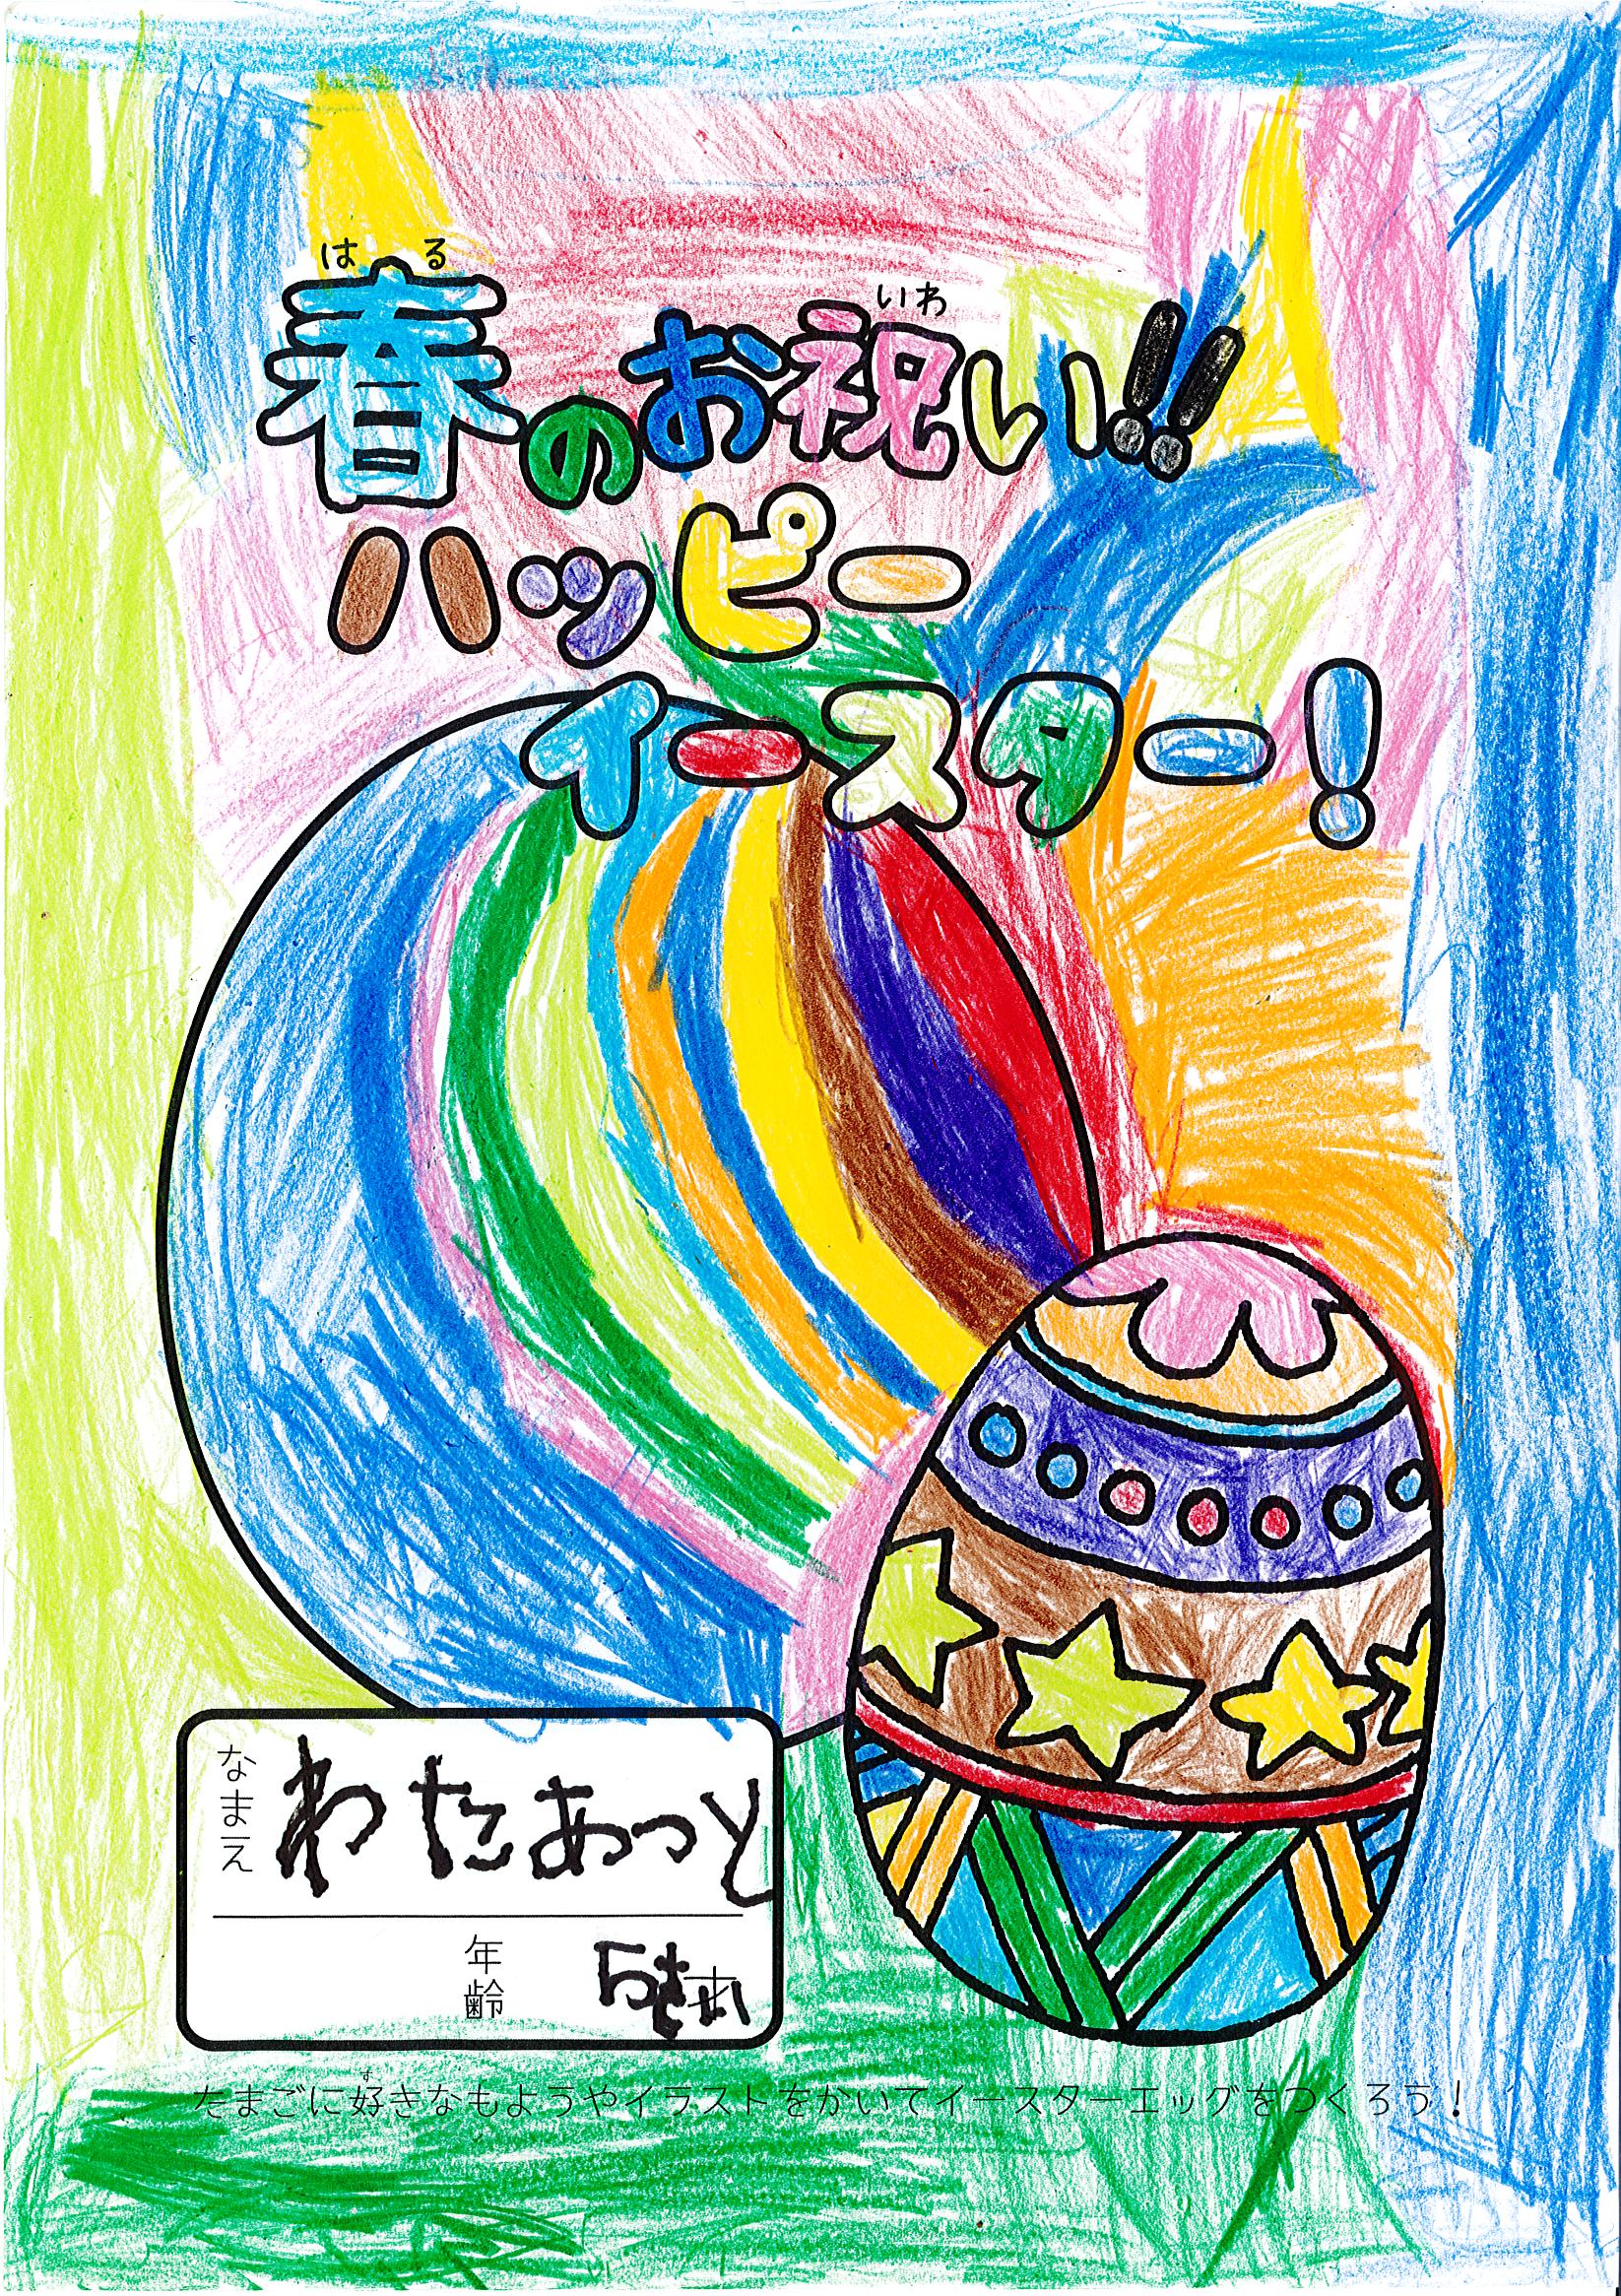 はる
いわ
春のお祝い!!
ハッピー
イースター!
なまえ
わたあつと
年齢
5さい
す
たまごに好きなもようやイラストをかいてイースターエッグをつくろう!